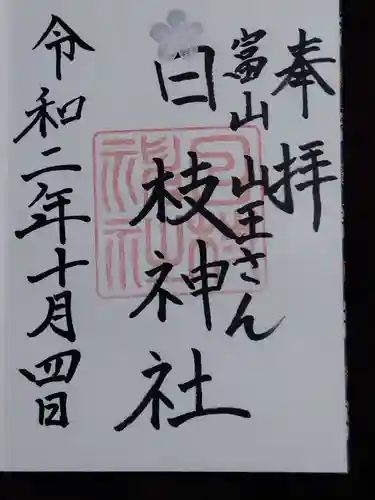 奉拝
富山 山王さん
日枝神社
令和二年十月四日
日枝神社